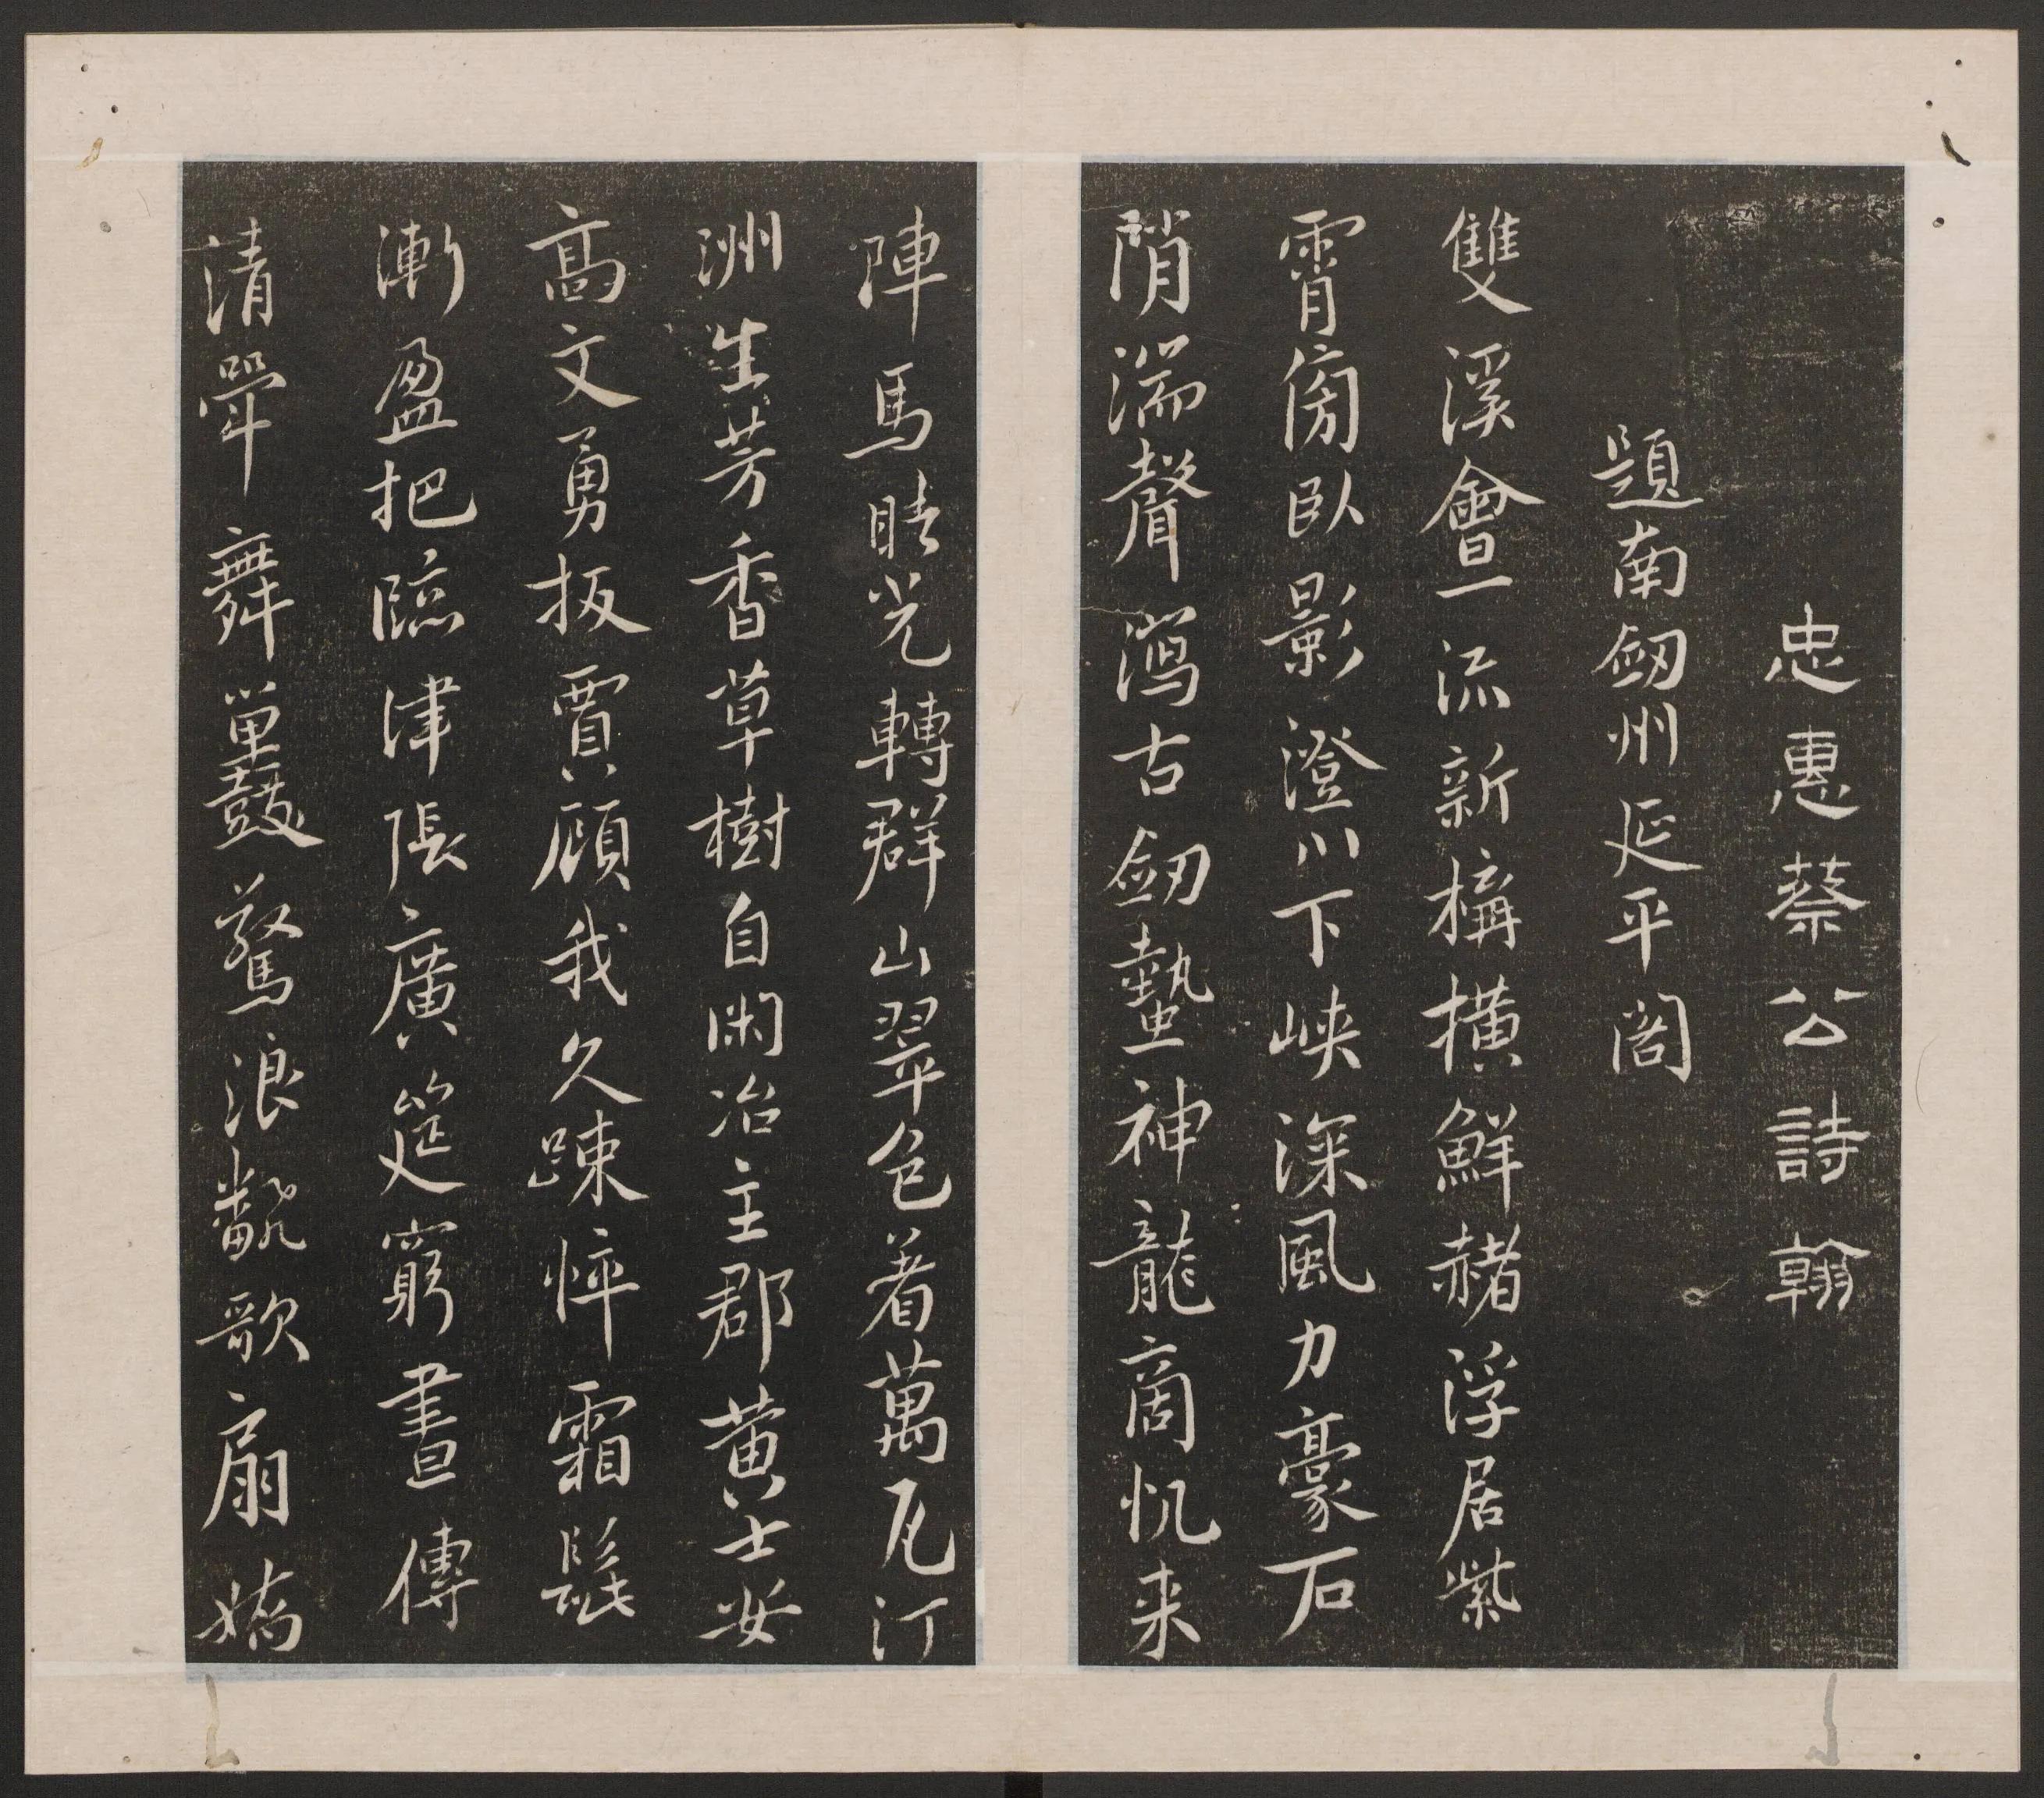 忠惠蔡公詩翰
題南劒州延平閣
雙溪會一流新構橫鮮赭浮居紫
霄傍臥影澄川下峽深風力豪石
陗湍聲瀉古劒蟄神龍商帆来
陣馬晴光轉群山翠色着萬瓦汀
洲生芳香草樹自閑冶主郡黄士安
高文勇扳賈顧我久踈悴霜髭
漸盈把臨津張廣筵窮晝傳
清斝舞鼙驚浪飜歌扇嬌